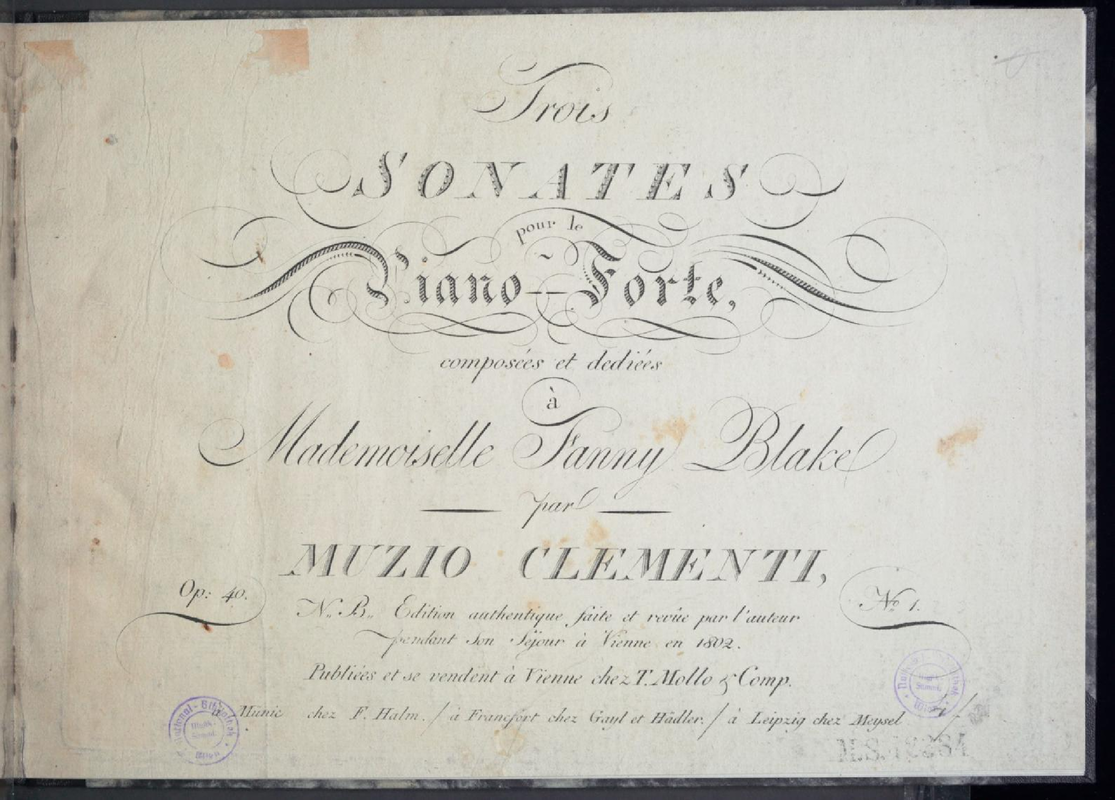 Trois
SONATES
pour le
Piano-Forte,
composées et dediées
à
Mademoiselle Fanny Blake
par
MUZIO CLEMENTI,
Op: 40.
No 1.
N. B. Edition authentique faite et revüe par l'auteur
pendant son Séjour à Vienne en 1802.
Publiées et se vendent à Vienne chez T. Mollo & Comp.
à Münic chez F. Halm. / à Francfort chez Gayl et Hädler. / à Leipzig chez Meysel
National-Bibliothek
Wien